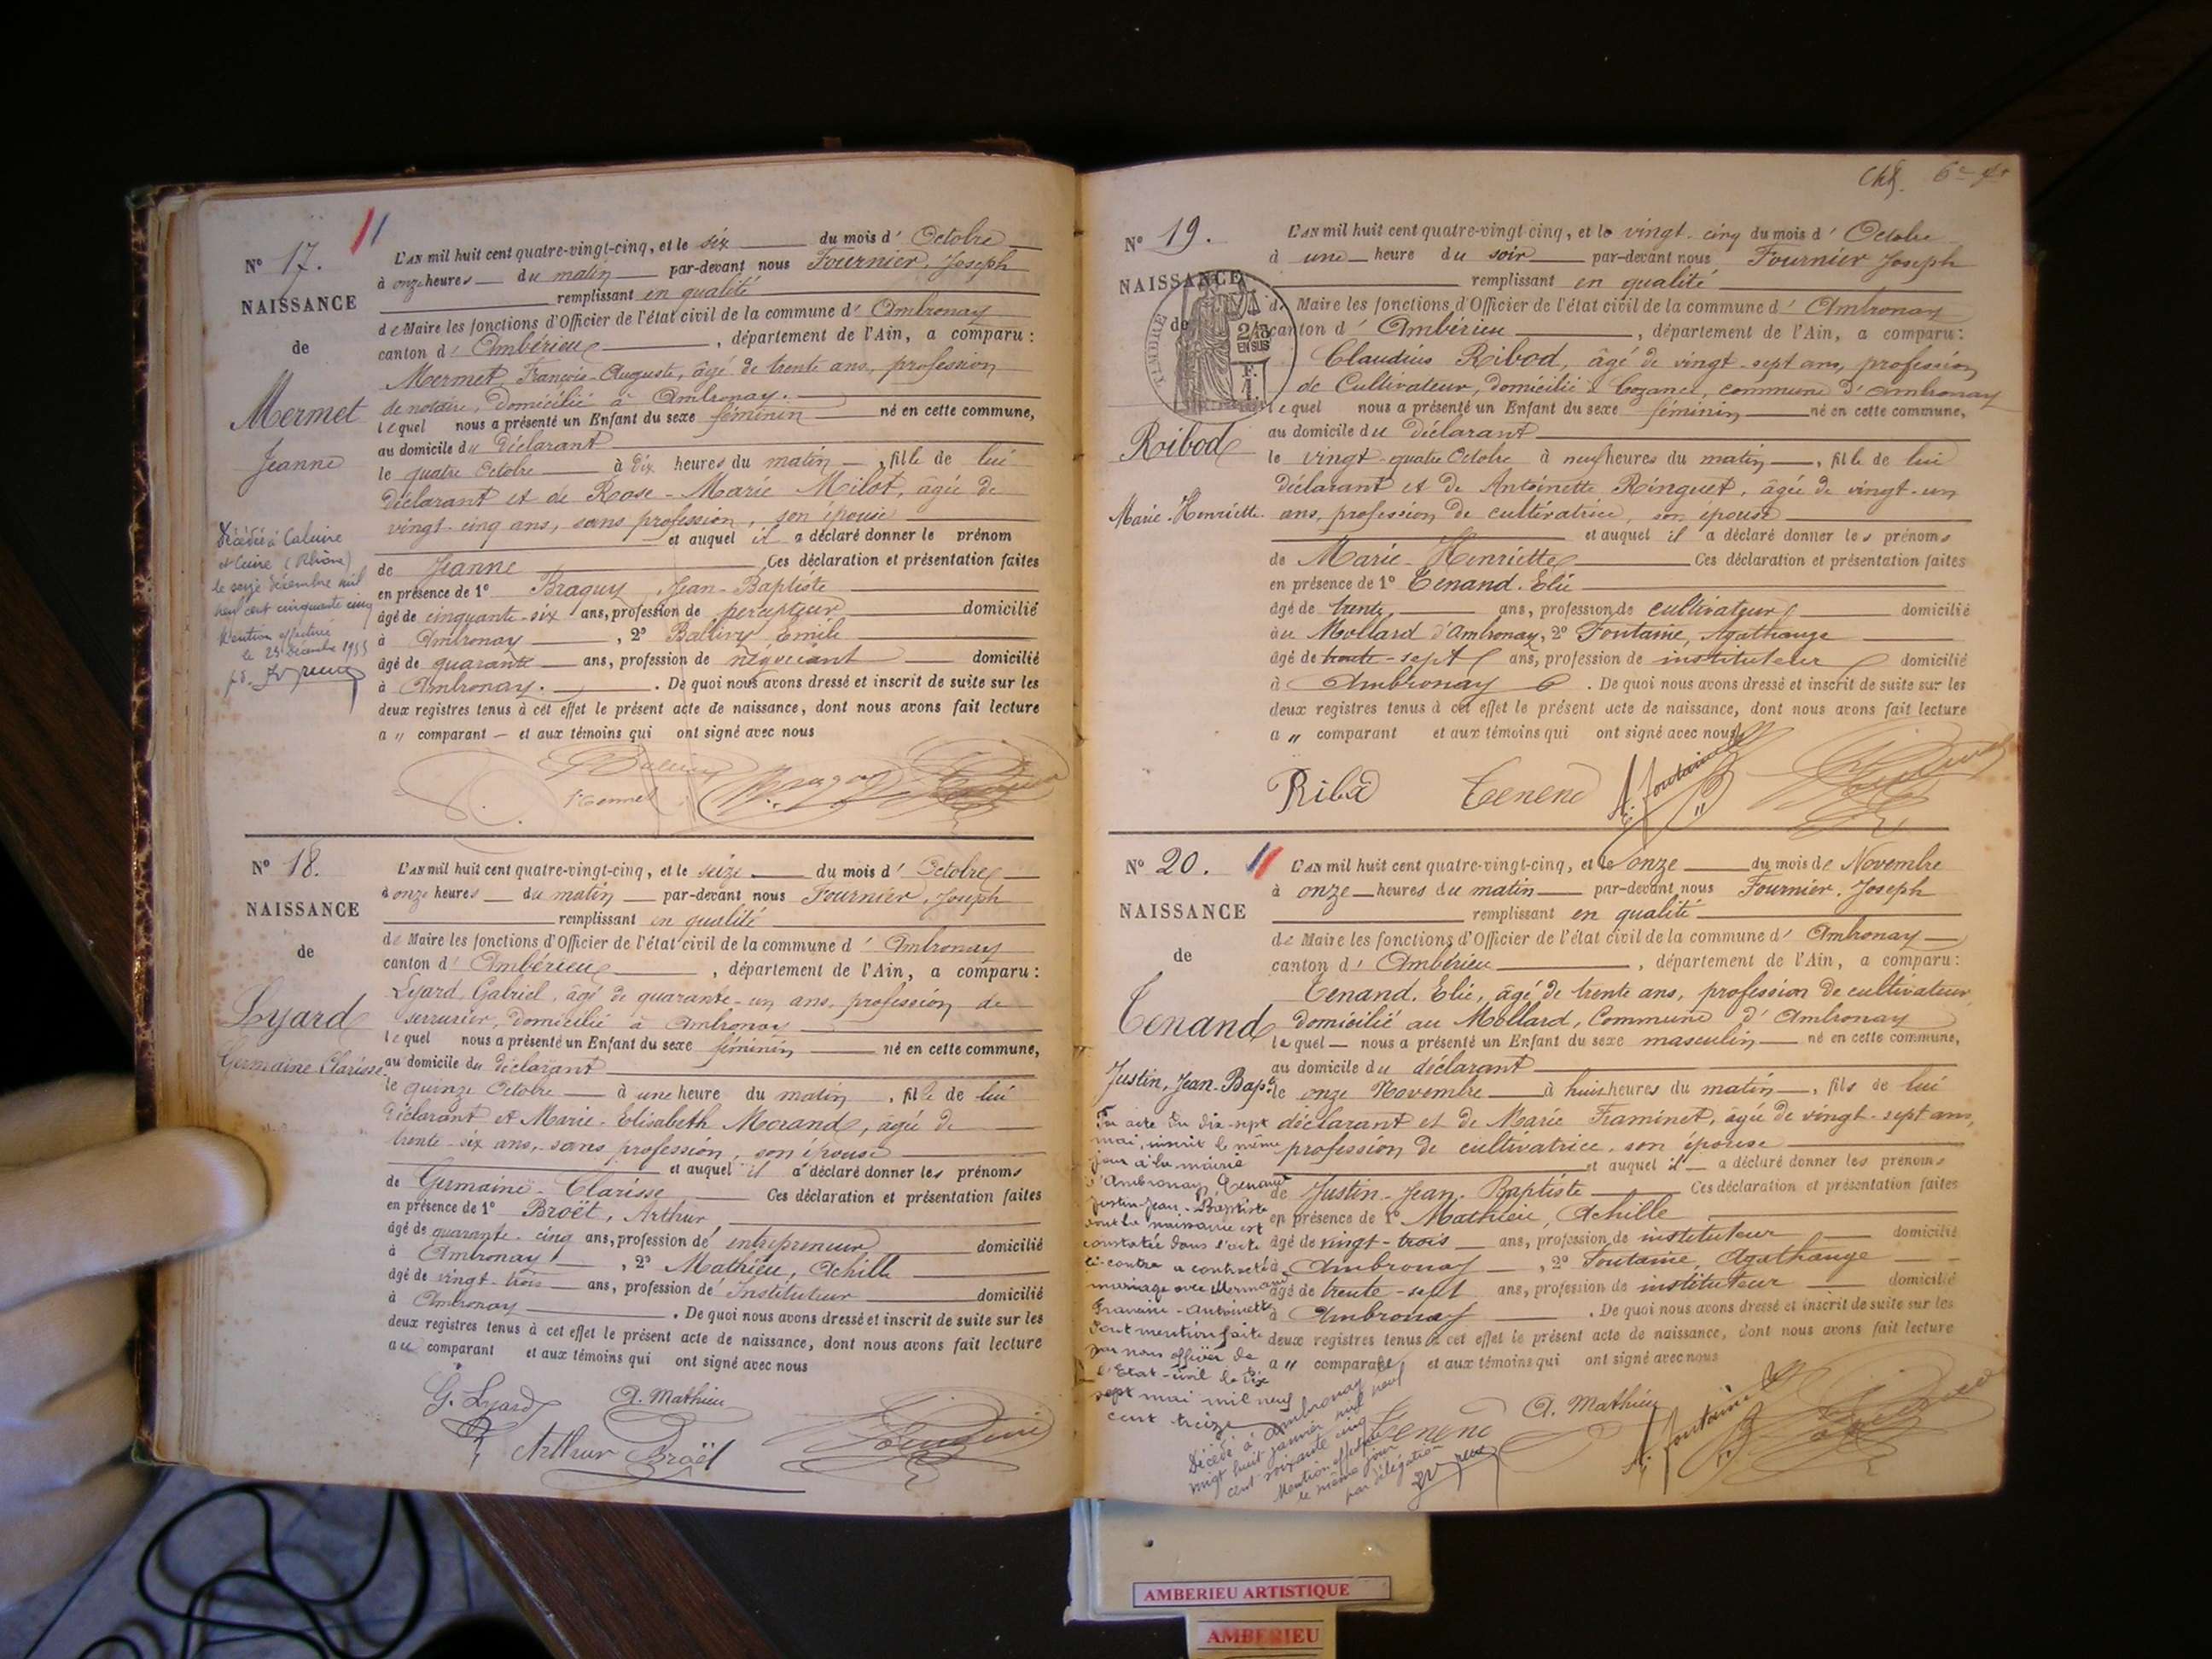 Nº 17.
NAISSANCE
de
Mermet
Jeanne
Décédée à Caluire
et Cuire (Rhône)
le seize décembre mil
neuf cent cinquante cinq
Mention effectuée
le 23 décembre 1955
L'AN mil huit cent quatre-vingt-cinq, et le six du mois d' Octobre
à onze heures du matin par-devant nous Fournier, Joseph
remplissant en qualité
de Maire les fonctions d'Officier de l'état civil de la commune d' Ambronay
canton d' Ambérieu, département de l'Ain, a comparu :
Mermet, François-Auguste, âgé de trente ans, profession
de notaire, domicilié à Ambronay.
lequel nous a présenté un Enfant du sexe féminin né en cette commune,
au domicile du déclarant
le quatre Octobre à dix heures du matin, fille de lui
déclarant et de Rose-Marie Milot, âgée de
vingt-cinq ans, sans profession, son épouse
et auquel il a déclaré donner le prénom
de Jeanne Ces déclaration et présentation faites
en présence de 1º Braguy, Jean-Baptiste
âgé de cinquante-six ans, profession de percepteur domicilié
à Ambronay, 2º Ballivy Emile
âgé de quarante ans, profession de négociant domicilié
à Ambronay. De quoi nous avons dressé et inscrit de suite sur les
deux registres tenus à cet effet le présent acte de naissance, dont nous avons fait lecture
a " comparant – et aux témoins qui ont signé avec nous
Nº 18.
NAISSANCE
de
Lyard
Germaine Clarisse
L'AN mil huit cent quatre-vingt-cinq, et le seize du mois d' Octobre
à onze heures du matin par-devant nous Fournier, Joseph
remplissant en qualité
de Maire les fonctions d'Officier de l'état civil de la commune d' Ambronay
canton d' Ambérieu, département de l'Ain, a comparu :
Lyard, Gabriel, âgé de quarante-un ans, profession de
serrurier, domicilié à Ambronay
lequel nous a présenté un Enfant du sexe féminin né en cette commune,
au domicile du déclarant
le quinze Octobre à une heure du matin, fille de lui
déclarant et Marie-Elisabeth Morand, âgée de
trente-six ans, sans profession, son épouse
et auquel il a déclaré donner les prénoms
de Germaine-Clarisse Ces déclaration et présentation faites
en présence de 1º Broët, Arthur
âgé de quarante-cinq ans, profession d' entrepreneur domicilié
à Ambronay, 2º Mathieu, Achille
âgé de vingt-trois ans, profession d' Instituteur domicilié
à Ambronay. De quoi nous avons dressé et inscrit de suite sur les
deux registres tenus à cet effet le présent acte de naissance, dont nous avons fait lecture
au comparant et aux témoins qui ont signé avec nous
G. Lyard A. Mathieu
Arthur Broët
Nº 19.
NAISSANCE
de
TIMBRE
2/10
EN SUS
Ribod
Marie-Henriette
L'AN mil huit cent quatre-vingt cinq, et le vingt-cinq du mois d' Octobre
à une heure du soir par-devant nous Fournier Joseph
remplissant en qualité
de Maire les fonctions d'Officier de l'état civil de la commune d' Ambronay
canton d' Ambérieu, département de l'Ain, a comparu :
Claudius Ribod, âgé de vingt-sept ans, profession
de Cultivateur, domicilié à Cozance, commune d'Ambronay
lequel nous a présenté un Enfant du sexe féminin né en cette commune,
au domicile du déclarant
le vingt-quatre Octobre à neuf heures du matin, fille de lui
déclarant et de Antoinette Ringuet, âgée de vingt-un
ans, profession de cultivatrice, son épouse
et auquel il a déclaré donner les prénoms
de Marie-Henriette Ces déclaration et présentation faites
en présence de 1º Tenand. Elie
âgé de trente ans, profession de cultivateur domicilié
au Mollard d'Ambronay, 2º Fontaine, Agathange
âgé de trente-sept ans, profession de instituteur domicilié
à Ambronay. De quoi nous avons dressé et inscrit de suite sur les
deux registres tenus à cet effet le présent acte de naissance, dont nous avons fait lecture
a " comparant et aux témoins qui ont signé avec nous
Ribod Tenend A. Fontaine
Nº 20.
NAISSANCE
de
Tenand
Justin, Jean-Bapte
Par acte du dix-sept
mai, inscrit le même
jour à la mairie
d'Ambronay, Tenand
Justin-Jean-Baptiste
dont la naissance est
constatée dans l'acte
ci-contre a contracté
mariage avec
Francine-Antoinette
Dont mention faite
par nous officier de
l'Etat-civil le dix
sept mai mil neuf
cent treize
Décédé à Ambronay
vingt huit janvier mil neuf
cent soixante cinq
Mention effectuée
le même jour
par délégation
L'AN mil huit cent quatre-vingt-cinq, et le onze du mois de Novembre
à onze heures du matin par-devant nous Fournier, Joseph
remplissant en qualité
de Maire les fonctions d'Officier de l'état civil de la commune d' Ambronay
canton d' Ambérieu, département de l'Ain, a comparu :
Tenand. Elie, âgé de trente ans, profession de cultivateur
domicilié au Mollard, Commune d'Ambronay
lequel nous a présenté un Enfant du sexe masculin né en cette commune,
au domicile du déclarant
le onze Novembre à huit heures du matin, fils de lui
déclarant et de Marie Framinet, âgée de vingt-sept ans,
profession de cultivatrice, son épouse
et auquel il a déclaré donner les prénoms
de Justin-Jean-Baptiste Ces déclaration et présentation faites
en présence de 1º Mathieu, Achille
âgé de vingt-trois ans, profession de instituteur domicilié
à Ambronay, 2º Fontaine, Agathange
âgé de trente-sept ans, profession de instituteur domicilié
à Ambronay. De quoi nous avons dressé et inscrit de suite sur les
deux registres tenus à cet effet le présent acte de naissance, dont nous avons fait lecture
a " comparant et aux témoins qui ont signé avec nous
Tenend A. Mathieu A. Fontaine
AMBERIEU ARTISTIQUE
AMBERIEU